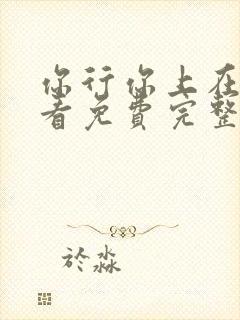 你行你上在
看免费完整
於淼